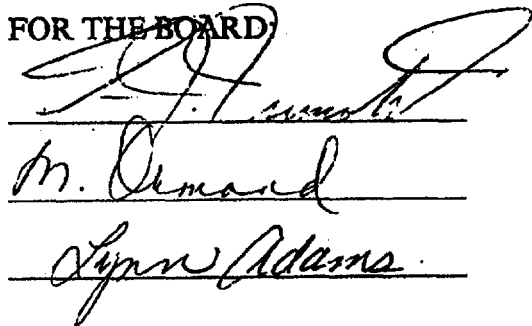 FOR THE BOARD:
M. Ormond
Lynn Adams